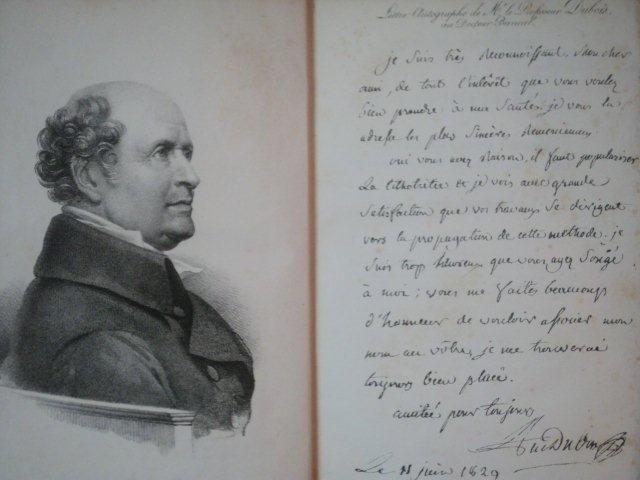 Lettre Autographe de Mr. le Professeur Dubois,
au Docteur
je suis très reconnoissant, mon cher
ami, de tout l'intérêt que vous voulez
bien prendre à ma santé. je vous en
adresse les plus sincères remerciemens
oui vous avez raison, il faut populariser
La lithotritie et je vois avec grande
satisfaction que vos travaux se dirigent
vers la propagation de cette methode. je
suis trop heureux que vous ayez songé
à moi ; vous me faites beaucoup
d'honneur de vouloir associer mon
nom au vôtre, je me trouverai
toujours bien placé.
amitié pour toujours
Dubois
Le 11 juin 1829